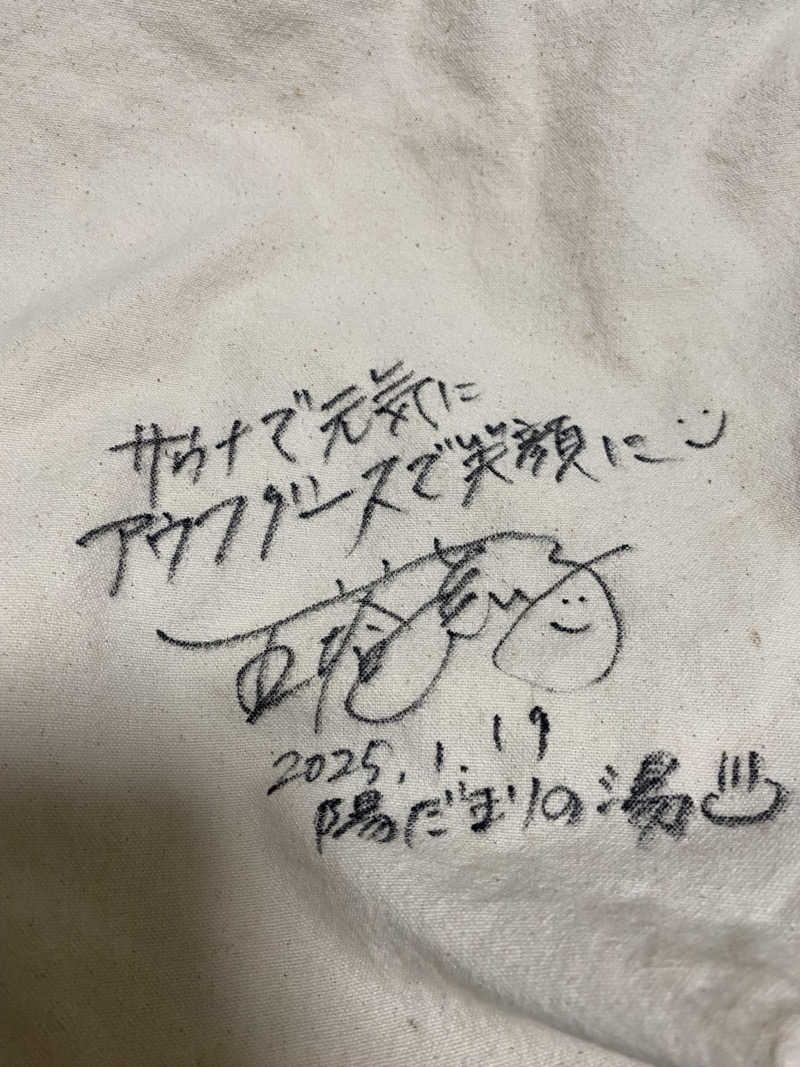 サウナで元気に
アウフグースで笑顔に
2025.1.19
陽だまりの湯